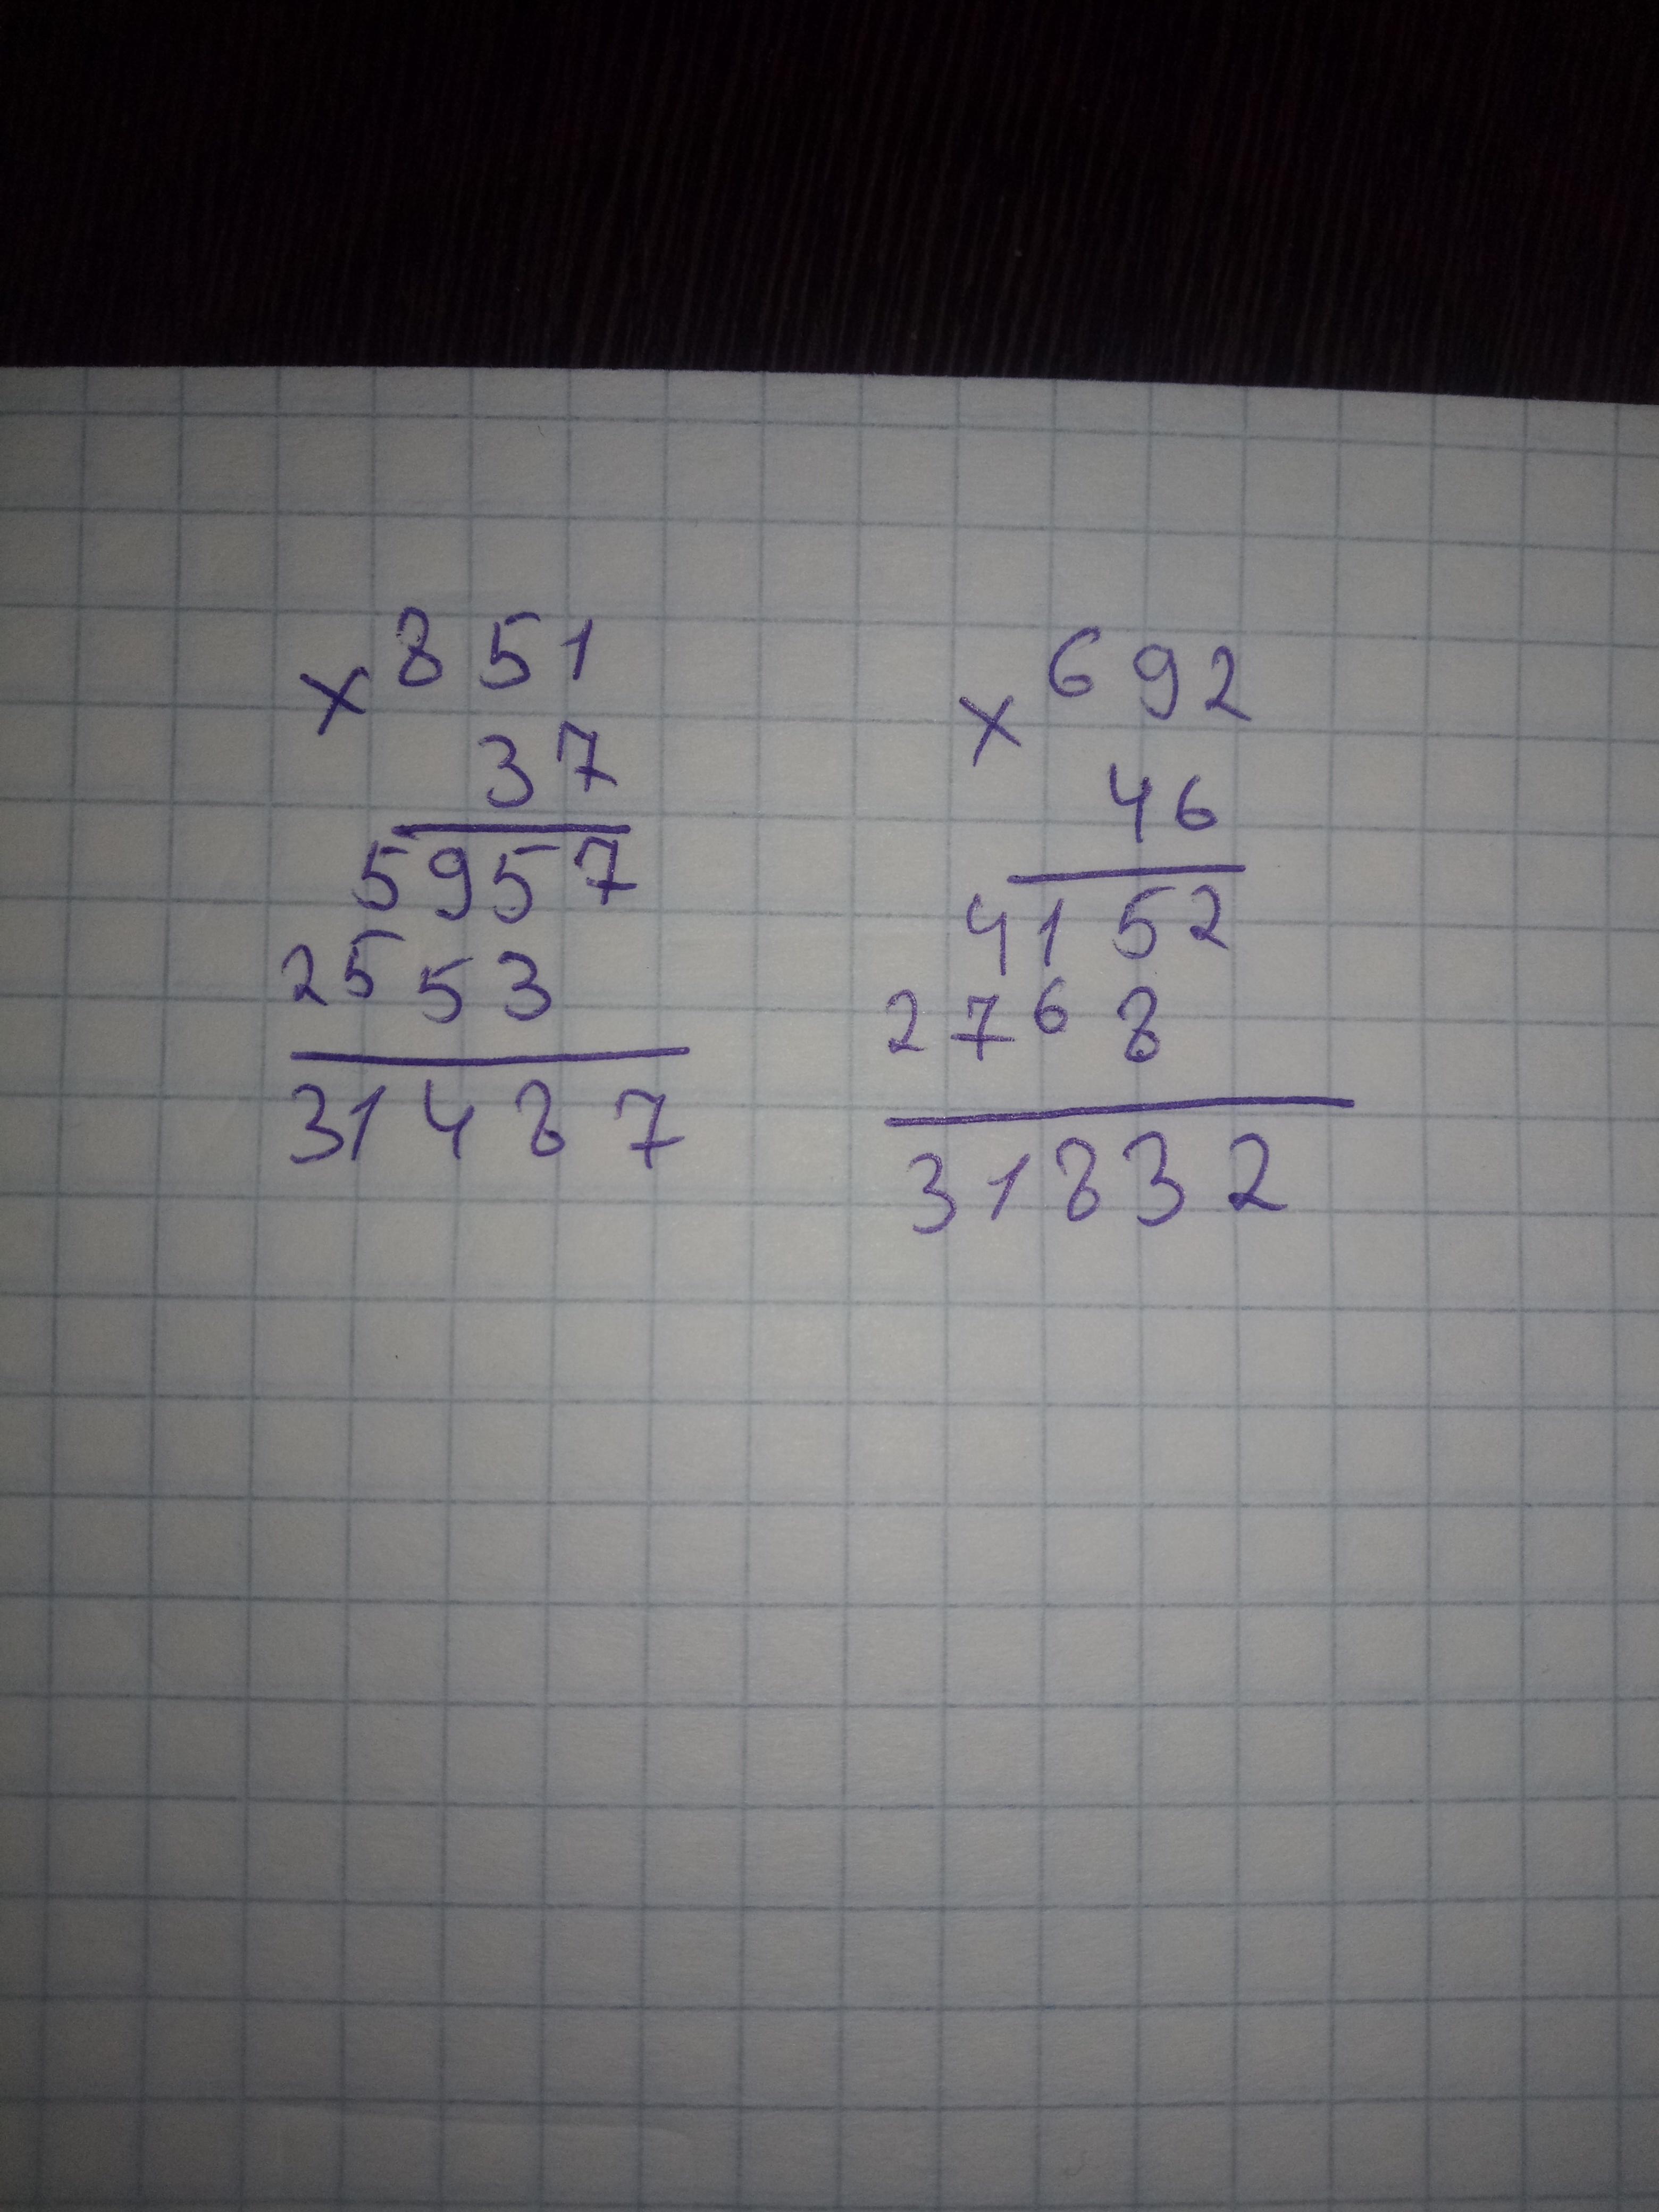 × 851
37
5957
2553
31487
× 692
46
4152
2768
31832